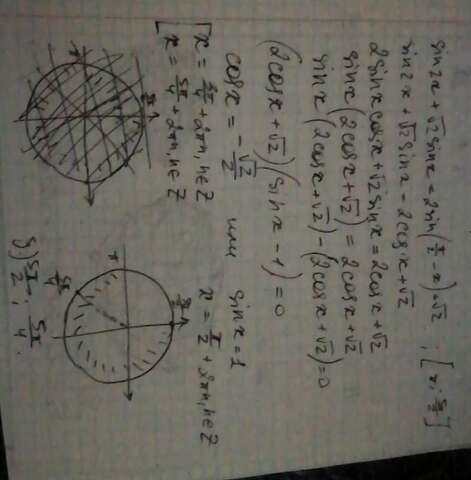 sin2x + √2 sinx = 2sin(π/2 - x) + √2 ; [π; 5π/2]
sin2x + √2 sinx = 2cosx + √2
2sinx cosx + √2 sinx = 2cosx + √2
sinx (2cosx + √2) = 2cosx + √2
sinx (2cosx + √2) - (2cosx + √2) = 0
(2cosx + √2)(sinx - 1) = 0
cosx = -√2/2 или sinx = 1
[ x = 3π/4 + 2πn, n∈Z x = π/2 + 2πn, n∈Z
x = 5π/4 + 2πn, n∈Z
5π/2
π
5π/2
π
5π/4
б) 5π/2 ; 5π/4.